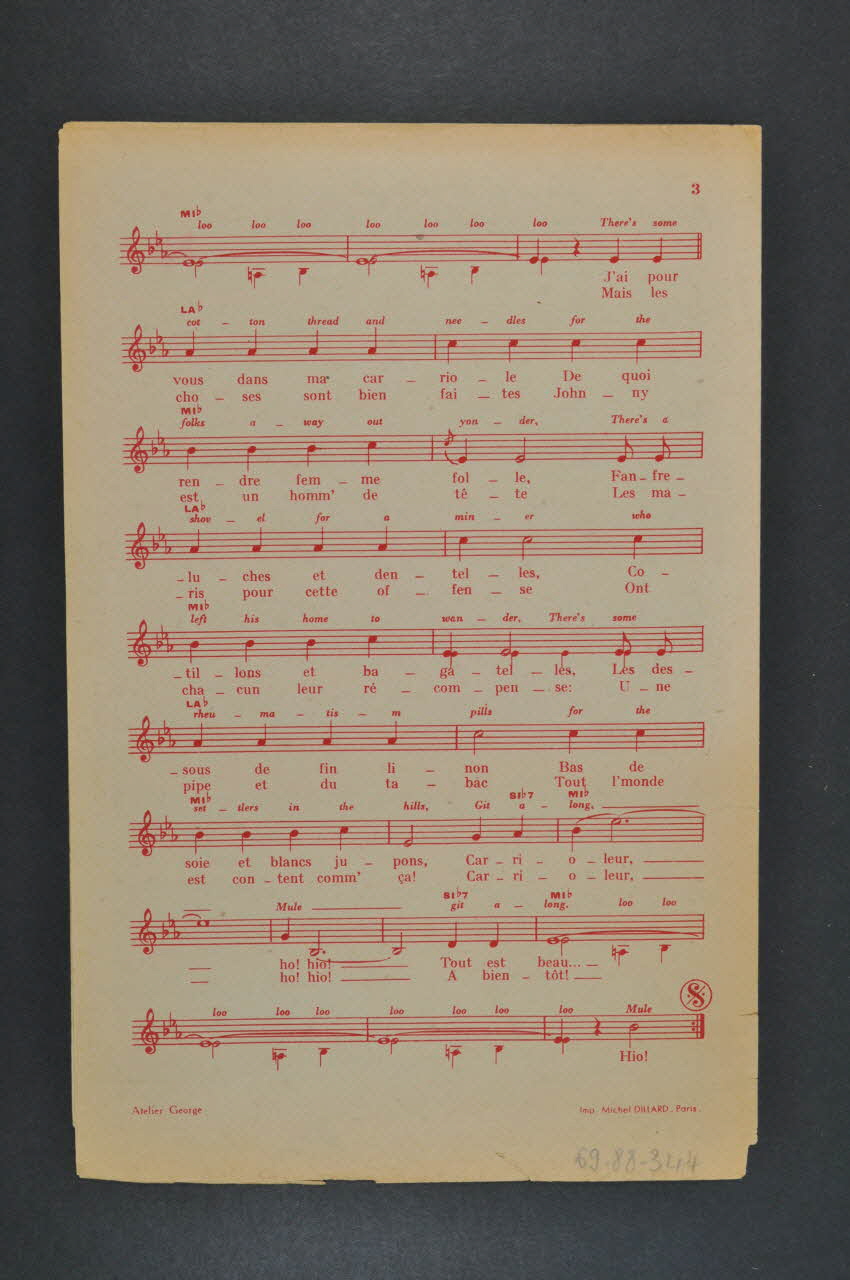 3
MI♭
loo loo loo loo loo loo loo There's some
J'ai pour
Mais les
LA♭
cot - ton thread and nee - dles for the
vous dans ma car - rio - le De quoi
cho - ses sont bien fai - tes John - ny
MI♭
folks a - way out yon - der, There's a
ren - dre fem - me fol - le, Fan - fre -
est un homm' de tê - te Les ma -
LA♭
shov - el for a min - er who
- lu - ches et den - tel - les, Co -
- ris pour cette of - fen - se Ont
MI♭
left his home to wan - der, There's some
- til - lons et ba - ga - tel - les, Les des -
cha - cun leur ré - com - pen - se: U - ne
LA♭
rheu - ma - tis - m pills for the
- sous de fin li - non Bas de
pipe et du ta - bac Tout l'monde
MI♭ SI♭7 MI♭
set - tlers in the hills, Git a - long,
soie et blancs ju - pons, Car - ri - o - leur,
est con - tent comm' ça! Car - ri - o - leur,
SI♭7 MI♭
Mule git a - long. loo loo
ho! hio! Tout est beau...
ho! hio! A bien - tôt!
loo loo loo loo loo loo loo Mule
Hio!
Atelier George Imp. Michel DILLARD. Paris.
69-88-344